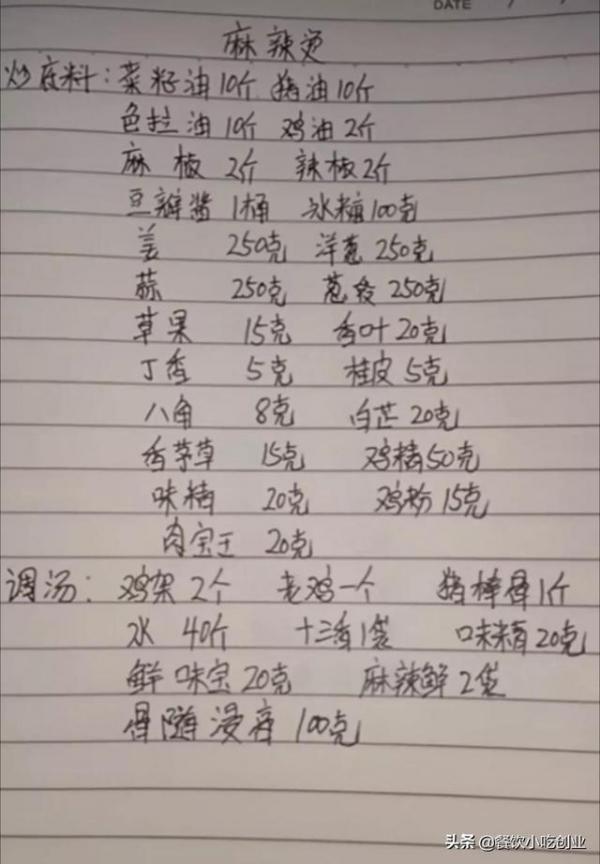 DATE
麻辣烫
炒底料：菜籽油10斤 猪油10斤
色拉油10斤 鸡油2斤
麻椒 2斤 辣椒2斤
豆瓣酱 1桶 冰糖100克
姜 250克 洋葱250克
蒜 250克 葱段250克
草果 15克 香叶20克
丁香 5克 桂皮5克
八角 8克 白芷20克
香茅草 15克 鸡精50克
味精 20克 鸡粉15克
肉宝王 20克
调汤：鸡架2个 老鸡一个 猪棒骨1斤
水 40斤 十三香1袋 味精20克
鲜味宝20克 麻辣鲜2袋
骨随浸膏 100克
头条 @餐饮小吃创业